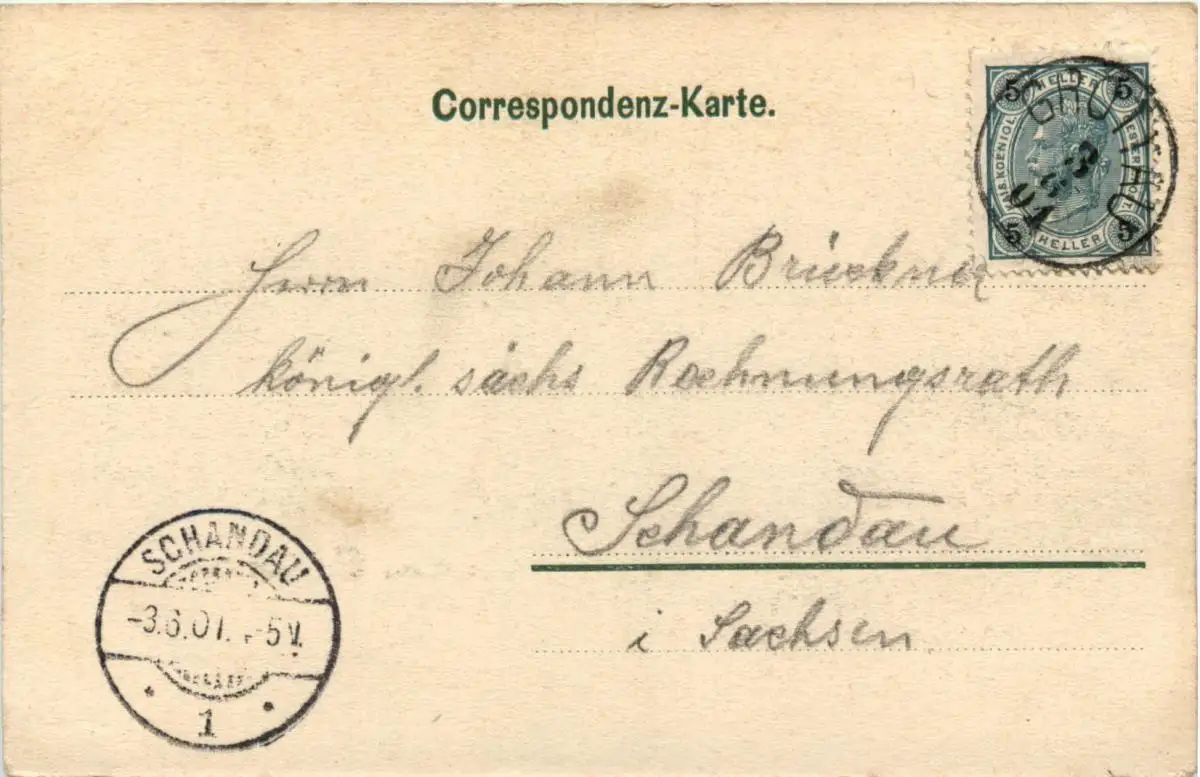 Correspondenz-Karte.
5 HELLER 5
KAIS. KOENIGL.
5 HELLER 5
GROTTAU
Herrn Johann Brückner
königl. sächs Rechnungsrath
Schandau
i Sachsen
SCHANDAU
-3.6.01. -5V.
1